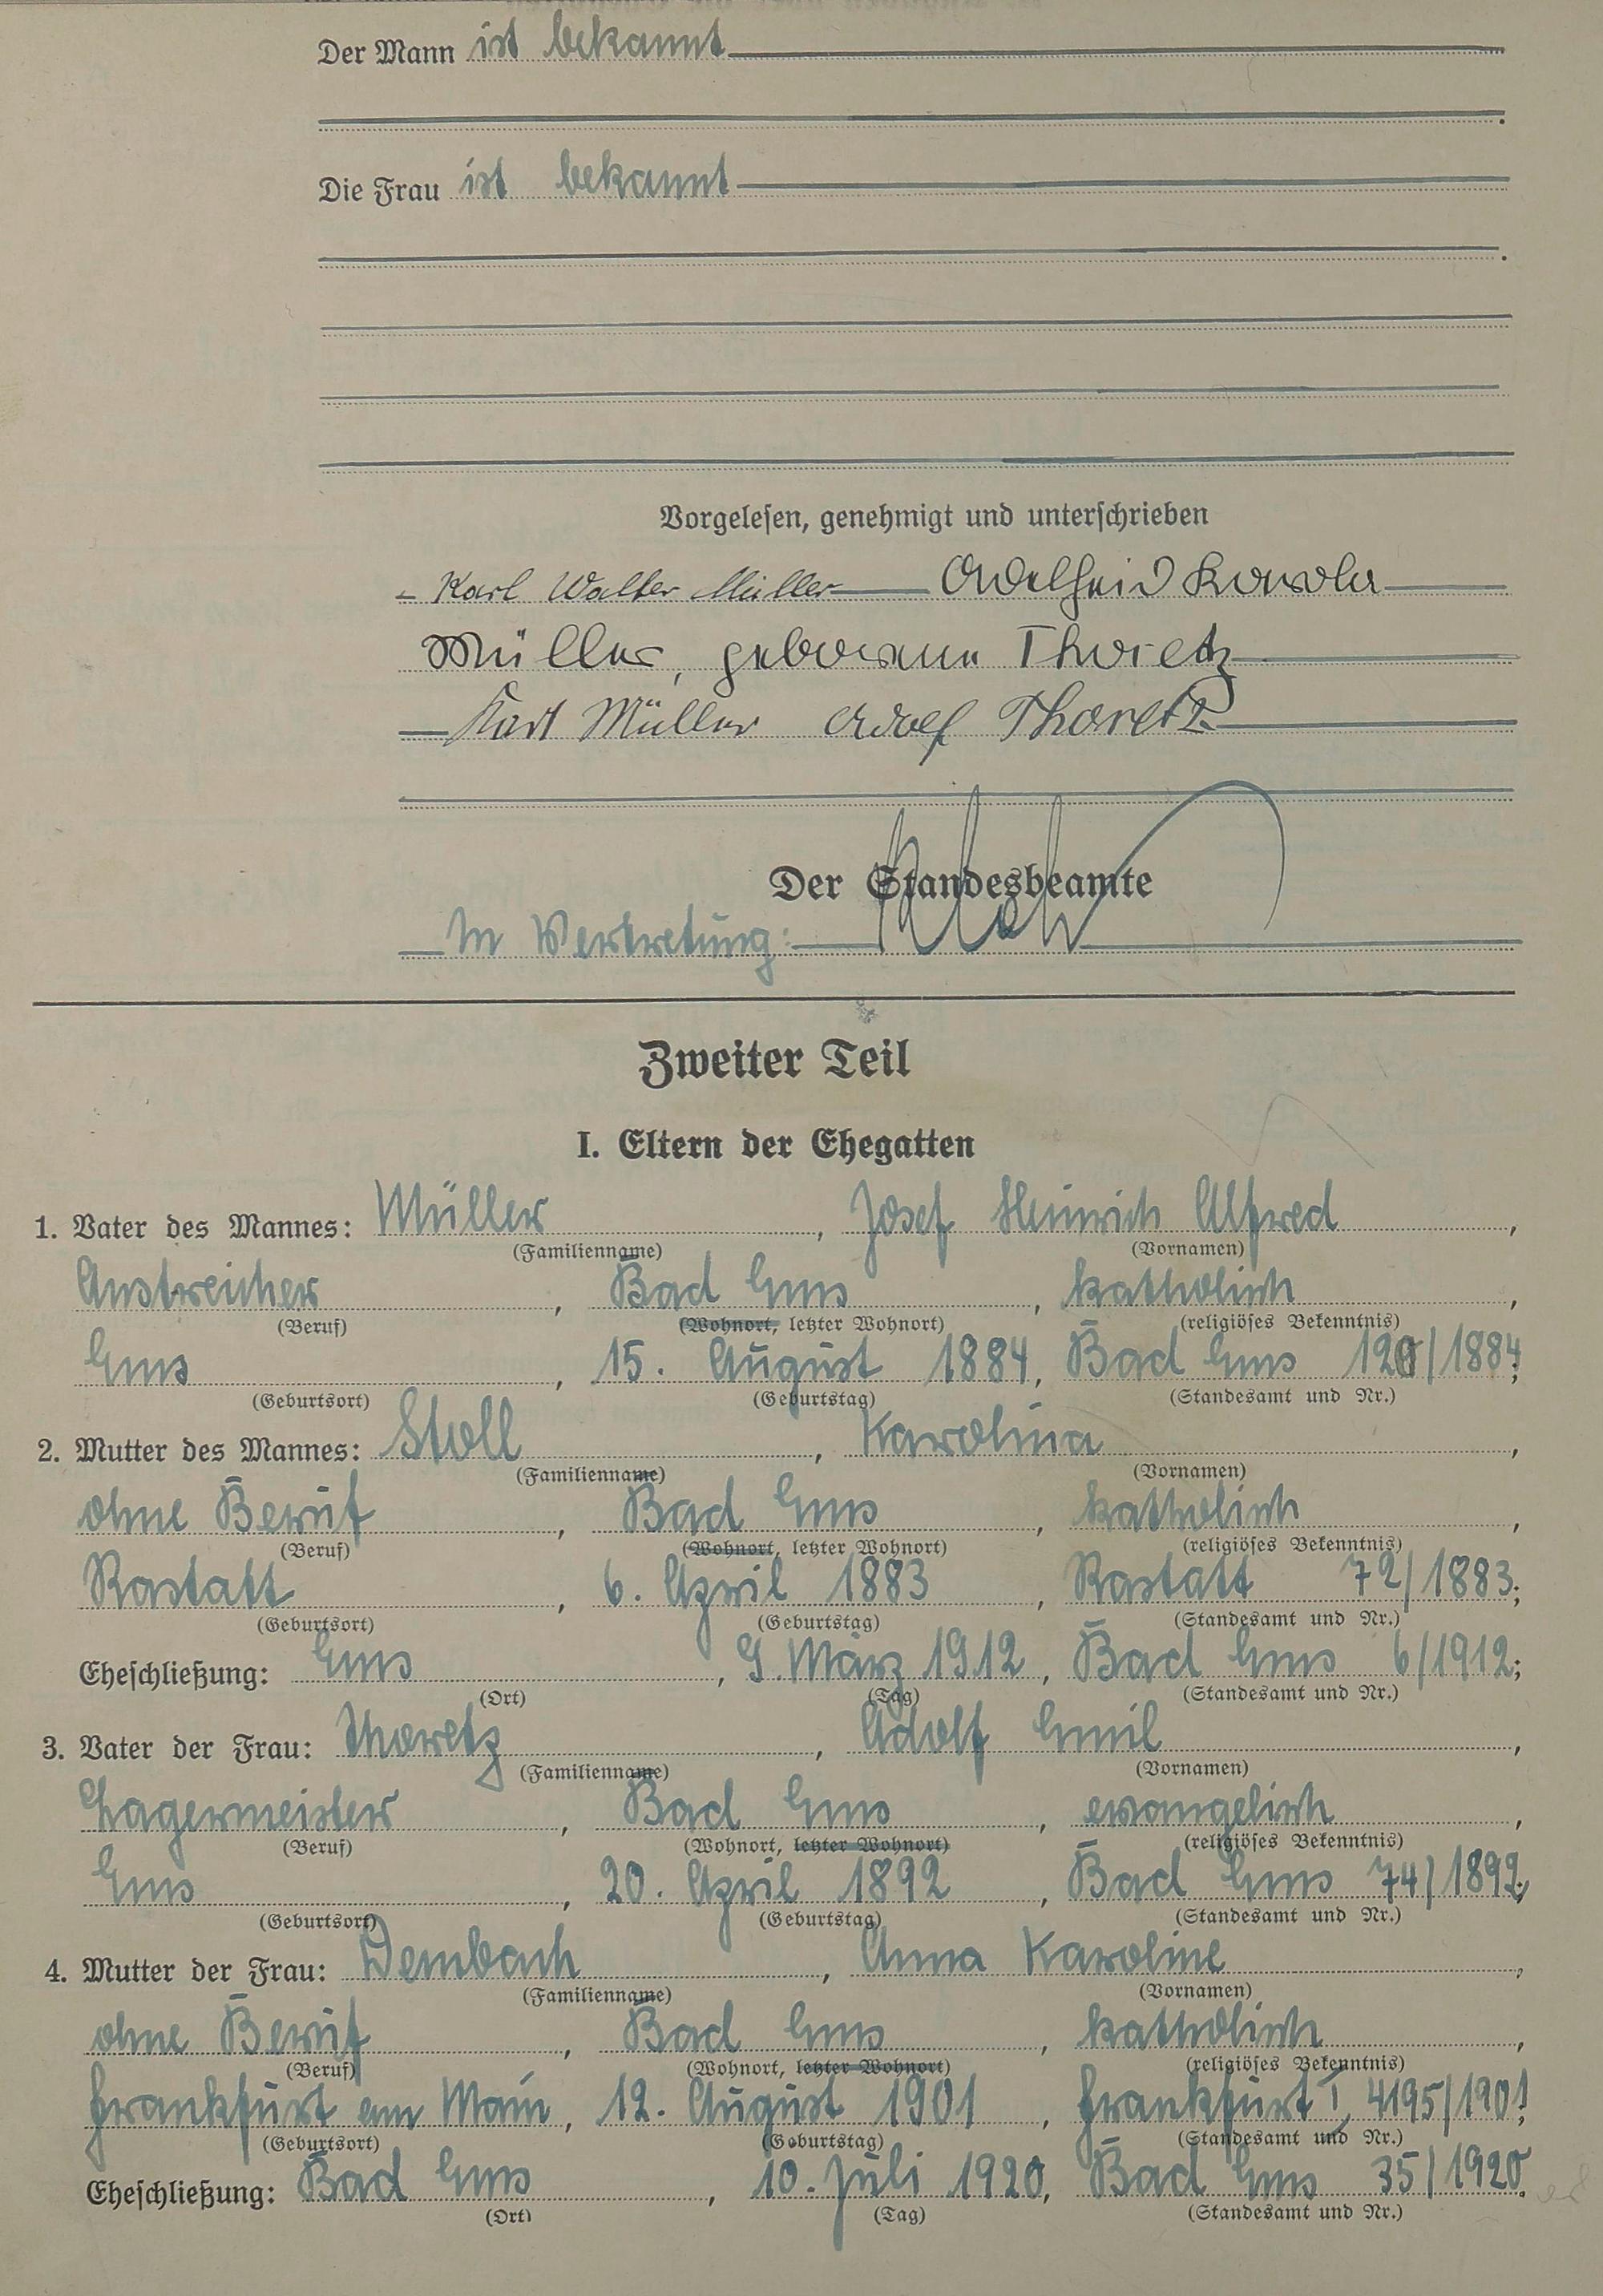 Der Mann ist bekannt
Die Frau ist bekannt
Vorgelesen, genehmigt und unterschrieben
Karl Walter Müller Adelheid
Müller, geborene Thoretz
Karl Müller Adolf Thoretz
Der Standesbeamte
In Vertretung:
Zweiter Teil
I. Eltern der Ehegatten
1. Vater des Mannes: Müller, Josef Heinrich Alfred,
(Familienname) (Vornamen)
Anstreicher, Bad Ems, katholisch,
(Beruf) (Wohnort, letzter Wohnort) (religiöses Bekenntnis)
Ems, 15. August 1884, Bad Ems 120/1884;
(Geburtsort) (Geburtstag) (Standesamt und Nr.)
2. Mutter des Mannes: Stoll, Karolina,
(Familienname) (Vornamen)
ohne Beruf, Bad Ems, katholisch,
(Beruf) (Wohnort, letzter Wohnort) (religiöses Bekenntnis)
Rastatt, 6. April 1883, Rastatt 72/1883;
(Geburtsort) (Geburtstag) (Standesamt und Nr.)
Eheschließung: Ems, 9. März 1912, Bad Ems 6/1912;
(Ort) (Tag) (Standesamt und Nr.)
3. Vater der Frau: Thoretz, Adolf Emil,
(Familienname) (Vornamen)
Lagermeister, Bad Ems, evangelisch,
(Beruf) (Wohnort, letzter Wohnort) (religiöses Bekenntnis)
Ems, 20. April 1892, Bad Ems 74/1892;
(Geburtsort) (Geburtstag) (Standesamt und Nr.)
4. Mutter der Frau: Dembach, Anna Karoline,
(Familienname) (Vornamen)
ohne Beruf, Bad Ems, katholisch,
(Beruf) (Wohnort, letzter Wohnort) (religiöses Bekenntnis)
Frankfurt am Main, 12. August 1901, Frankfurt I, 4195/1901;
(Geburtsort) (Geburtstag) (Standesamt und Nr.)
Eheschließung: Bad Ems, 10. Juli 1920, Bad Ems 35/1920.
(Ort) (Tag) (Standesamt und Nr.)